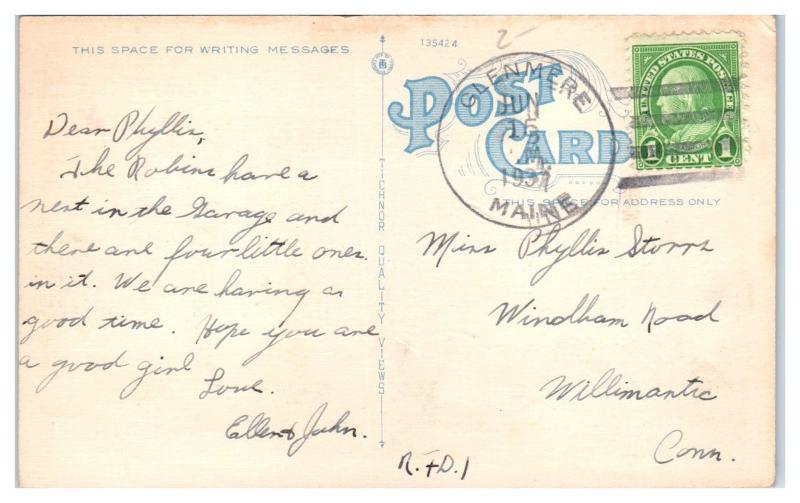 THIS SPACE FOR WRITING MESSAGES
135424
2-
POST
CARD
GLENMERE
JUN
15
1937
MAINE
UNITED STATES POSTAGE
1 CENT 1
THIS SPACE FOR ADDRESS ONLY
Dear Phyllis,
The Robins have a
nest in the Garage and
there are four little ones
in it. We are having a
good time. Hope you are
a good girl
Love.
Ellen & John.
TICHNOR QUALITY VIEWS
Miss Phyllis Storrs
Windham Road
Willimantic
Conn.
R.F.D.1